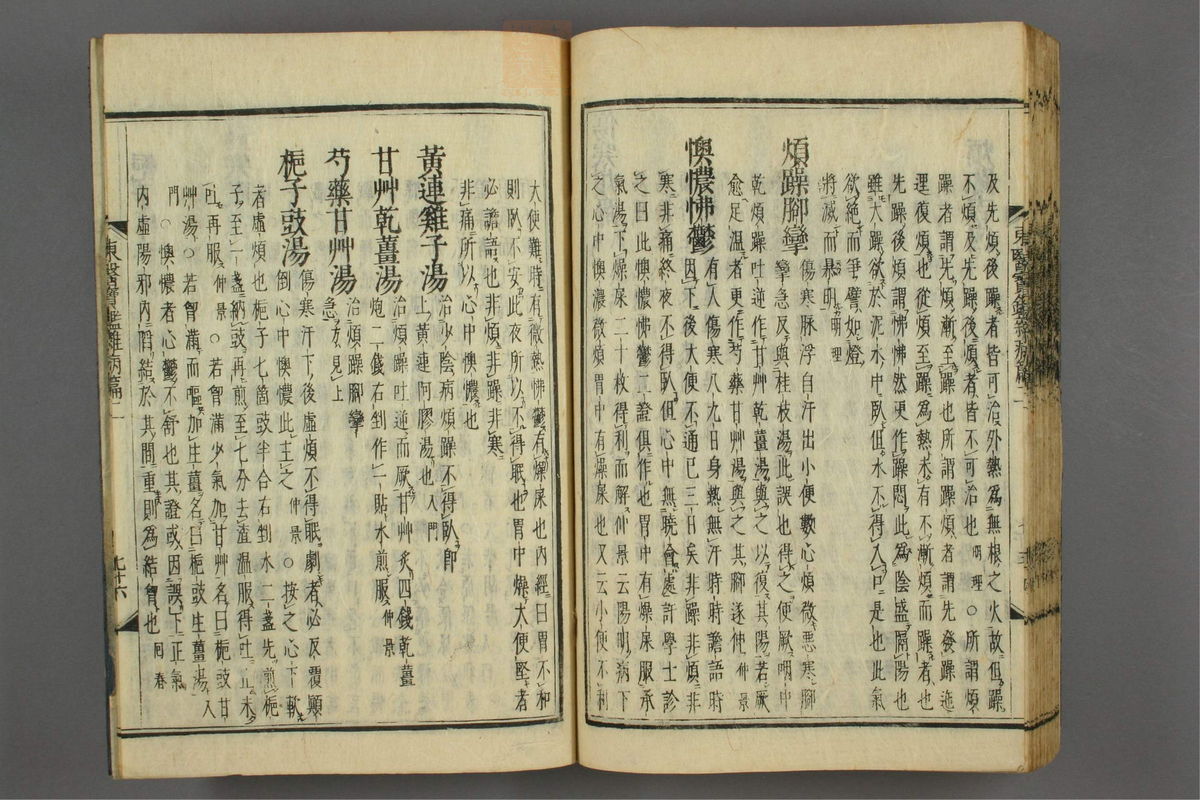 及先煩後躁者皆可治外熱爲無根之火故但躁
不煩及先躁後煩者皆不可治也明理○所謂煩
躁者謂先煩漸至躁也所謂躁煩者謂先發躁迤
理復煩也從煩至躁爲熱未有不漸煩而躁者也
先躁後煩謂怫怫然更作躁悶此爲陰盛隔陽也
雖大躁欲於泥水中臥但水不得入口是也此氣
欲絶而爭譬如燈
將滅而暴明明理
煩躁脚攣
傷寒脉浮自汗出小便數心煩微惡寒脚
攣急反與桂枝湯此誤也得之便厥咽中
乾煩躁吐逆作甘艸乾薑湯與之以復其陽若厥
愈足温者更作芍藥甘艸湯與之其脚遂伸仲景
懊憹怫鬱
有人傷寒八九日身熱無汗時時譫語時
因下後大便不通已三日矣非躁非煩非
寒非痛終夜不得臥但心中無曉會處許學士診
之曰此懊憹怫鬱二證俱作也胃中有燥屎服承
氣湯下燥屎二十枚得利而解仲景云陽明病下
之心中懊憹微煩胃中有燥屎也又云小便不利
大便難時有微熱怫鬱有燥屎也內經曰胃不和
則臥不安此夜所以不得眠也胃中燥大便堅者
必譫語也非煩非躁非寒
非痛所以心中懊憹也
黃連雞子湯
治少陰病煩躁不得臥卽
上黃連阿膠湯也入門
甘艸乾薑湯
治煩躁吐逆而厥甘艸炙四錢乾薑
炮二錢右剉作一貼水煎服仲景
芍藥甘艸湯
治煩躁脚攣
急方見上
梔子豉湯
傷寒汗下後虛煩不得眠劇者必反覆顚
倒心中懊憹此主之仲景○按之心下軟
者虛煩也梔子七箇豉半合右剉水二盞先煎梔
子至一盞納豉再煎至七分去渣温服得吐止未
可再服仲景○若胷滿少氣加甘艸名曰梔豉甘
艸湯○若胷滿而嘔加生薑名曰梔豉生薑湯入
門○懊憹者心鬱不舒也其證或因誤下正氣
内虛陽邪内陷結於其間重則爲結胷也回春
東醫寶鑑雜病篇二
九十六